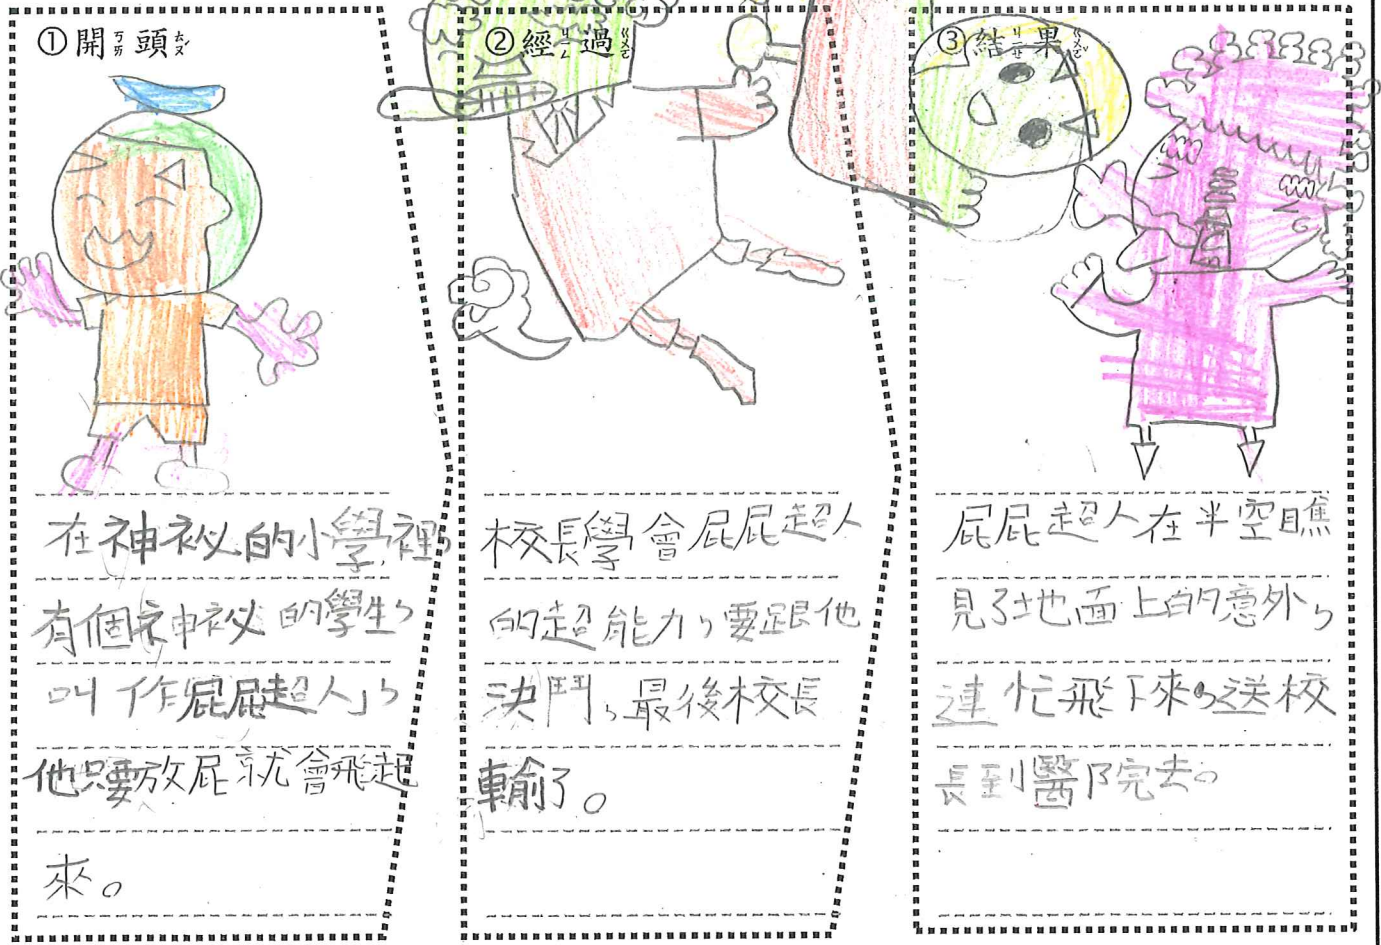 ①開ㄎㄞ頭ㄊㄡˊ
在神祕的小學裡，
有個神祕的學生，
叫作屁屁超人」，
他只要放屁就會飛起
來。
②經ㄐㄧㄥ過ㄍㄨㄛˋ
校長學會屁屁超人
的超能力，要跟他
決鬥，最後校長
輸了。
③結ㄐㄧㄝˊ果ㄍㄨㄛˇ
屁屁超人在半空瞧
見了地面上的意外，
連忙飛下來，送校
長到醫院去。